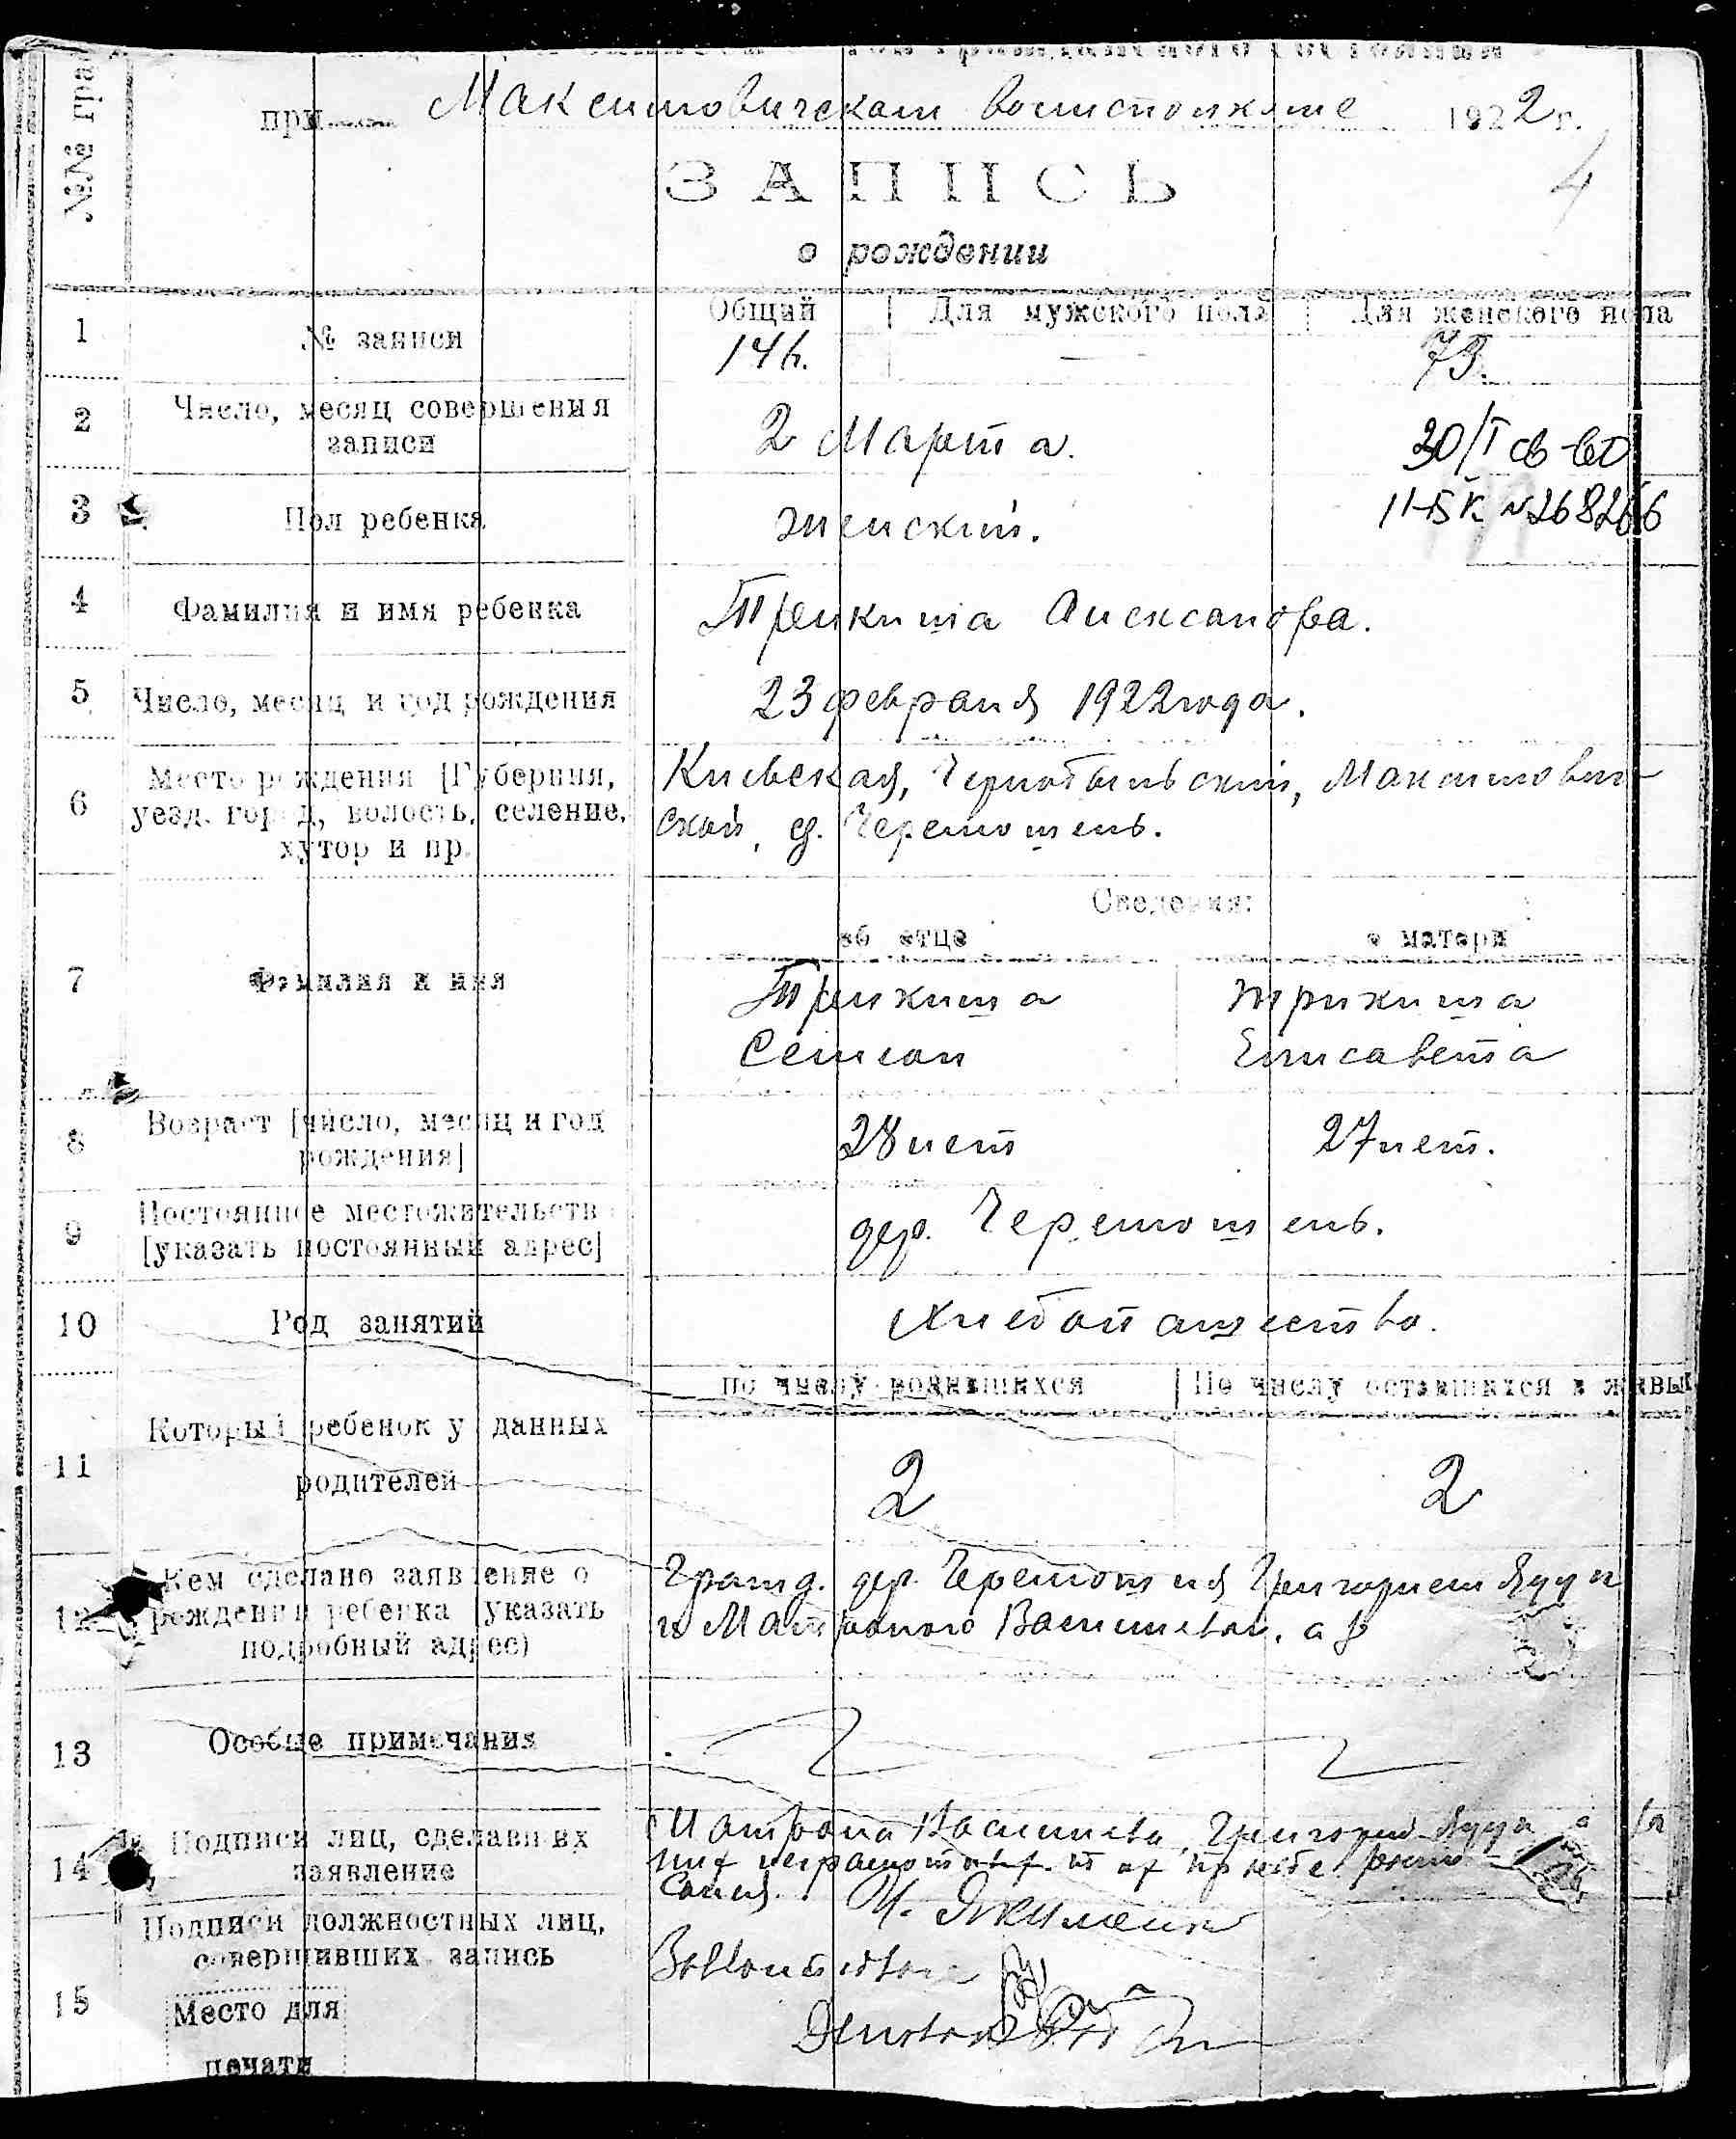 №№ гра
при Максимовичском волисполкоме 1922 г.
4
ЗАПИСЬ
о рождении
Общий Для мужского пола Для женского пола
1 № записи 146. — 73.
2 Число, месяц совершения
записи
2 Марта. 30/I св-во
3 Пол ребенка женский. II-БК №268266
4 Фамилия и имя ребенка Трикиша Александра.
5 Число, месяц и год рождения 23 февраля 1922 года.
6 Место рождения [Губерния,
уезд, город, волость, селение,
хутор и пр.
Киевская, Чернобыльский, Максимович-
ской, д. Черемошень.
Сведения:
об отце о матери
7 Фамилия и имя Трикиша Трикиша
Семион Елисавета
8 Возраст [число, месяц и год
рождения]
28 лет 27 лет.
9 Постоянное местожительств
[указать постоянный адрес]
дер. Черемошень.
10 Род занятий Хлебопашество.
По числу родившихся По числу оставшихся в живых
11 Который ребенок у данных
родителей
2 2
12 Кем сделано заявление о
рождении ребенка (указать
подробный адрес)
Гражд. дер. Черемошня Григорием
и Матроною
13 Особые примечания
14 Подписи лиц, сделавших
заявление
Матрона Григорий
М.
15 Подписи должностных лиц,
совершивших запись
Место для
печати